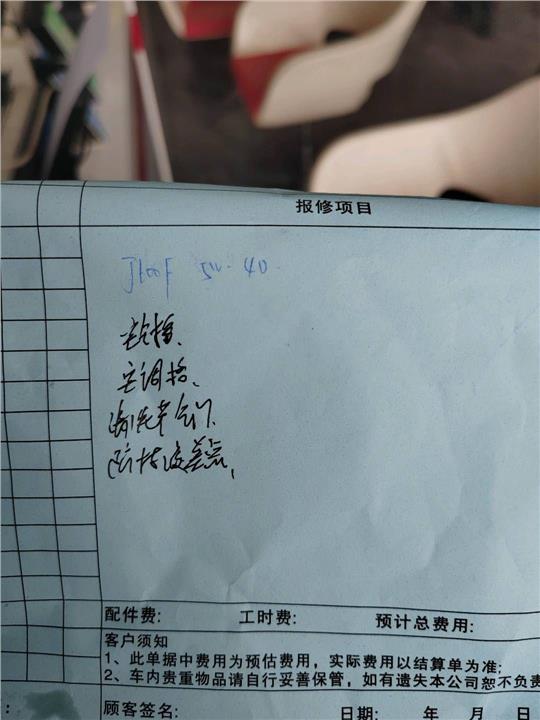 报修项目
5W-40
空调格、
防冻液差点、
配件费: 工时费: 预计总费用:
客户须知
1、此单据中费用为预估费用，实际费用以结算单为准;
2、车内贵重物品请自行妥善保管，如有遗失本公司恕不负责
顾客签名: 日期: 年 月 日